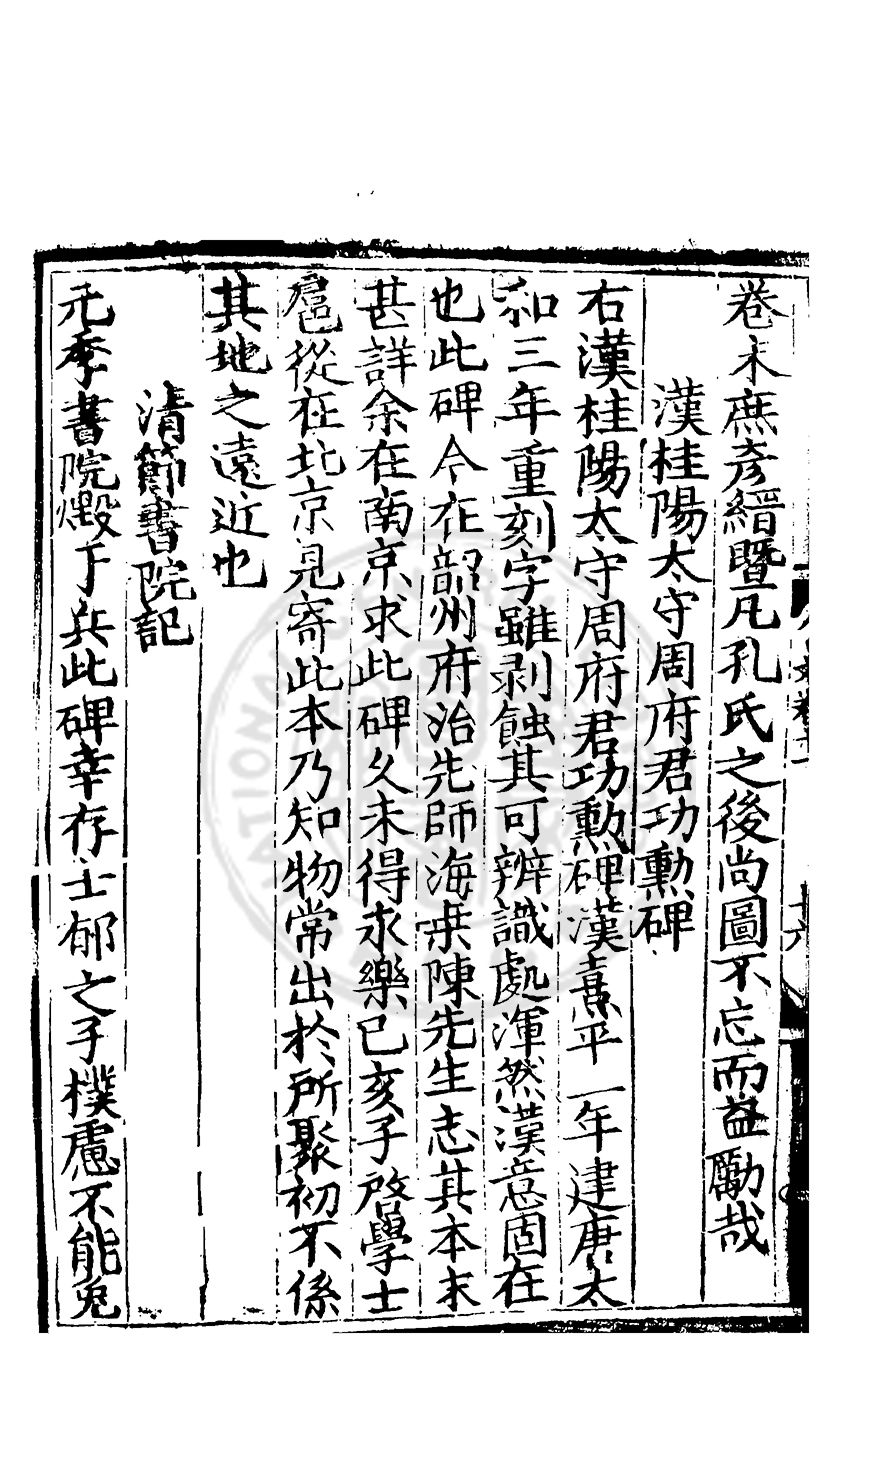 卷末庶彥縉暨凡孔氏之後尚圖不忘而益勵哉
漢桂陽太守周府君功勳碑
右漢桂陽太守周府君功勳碑漢熹平一年建唐太
和三年重刻字雖剥蝕其可辨識處渾然漢意固在
也此碑今在韶州府治先師海桒陳先生志其本末
甚詳余在南京求此碑久未得永樂己亥子啓學士
扈從在北京見寄此本乃知物常出於所聚初不係
其地之遠近也
清節書院記
元季書院燬于兵此碑幸存士郁之子樸慮不能免
十六